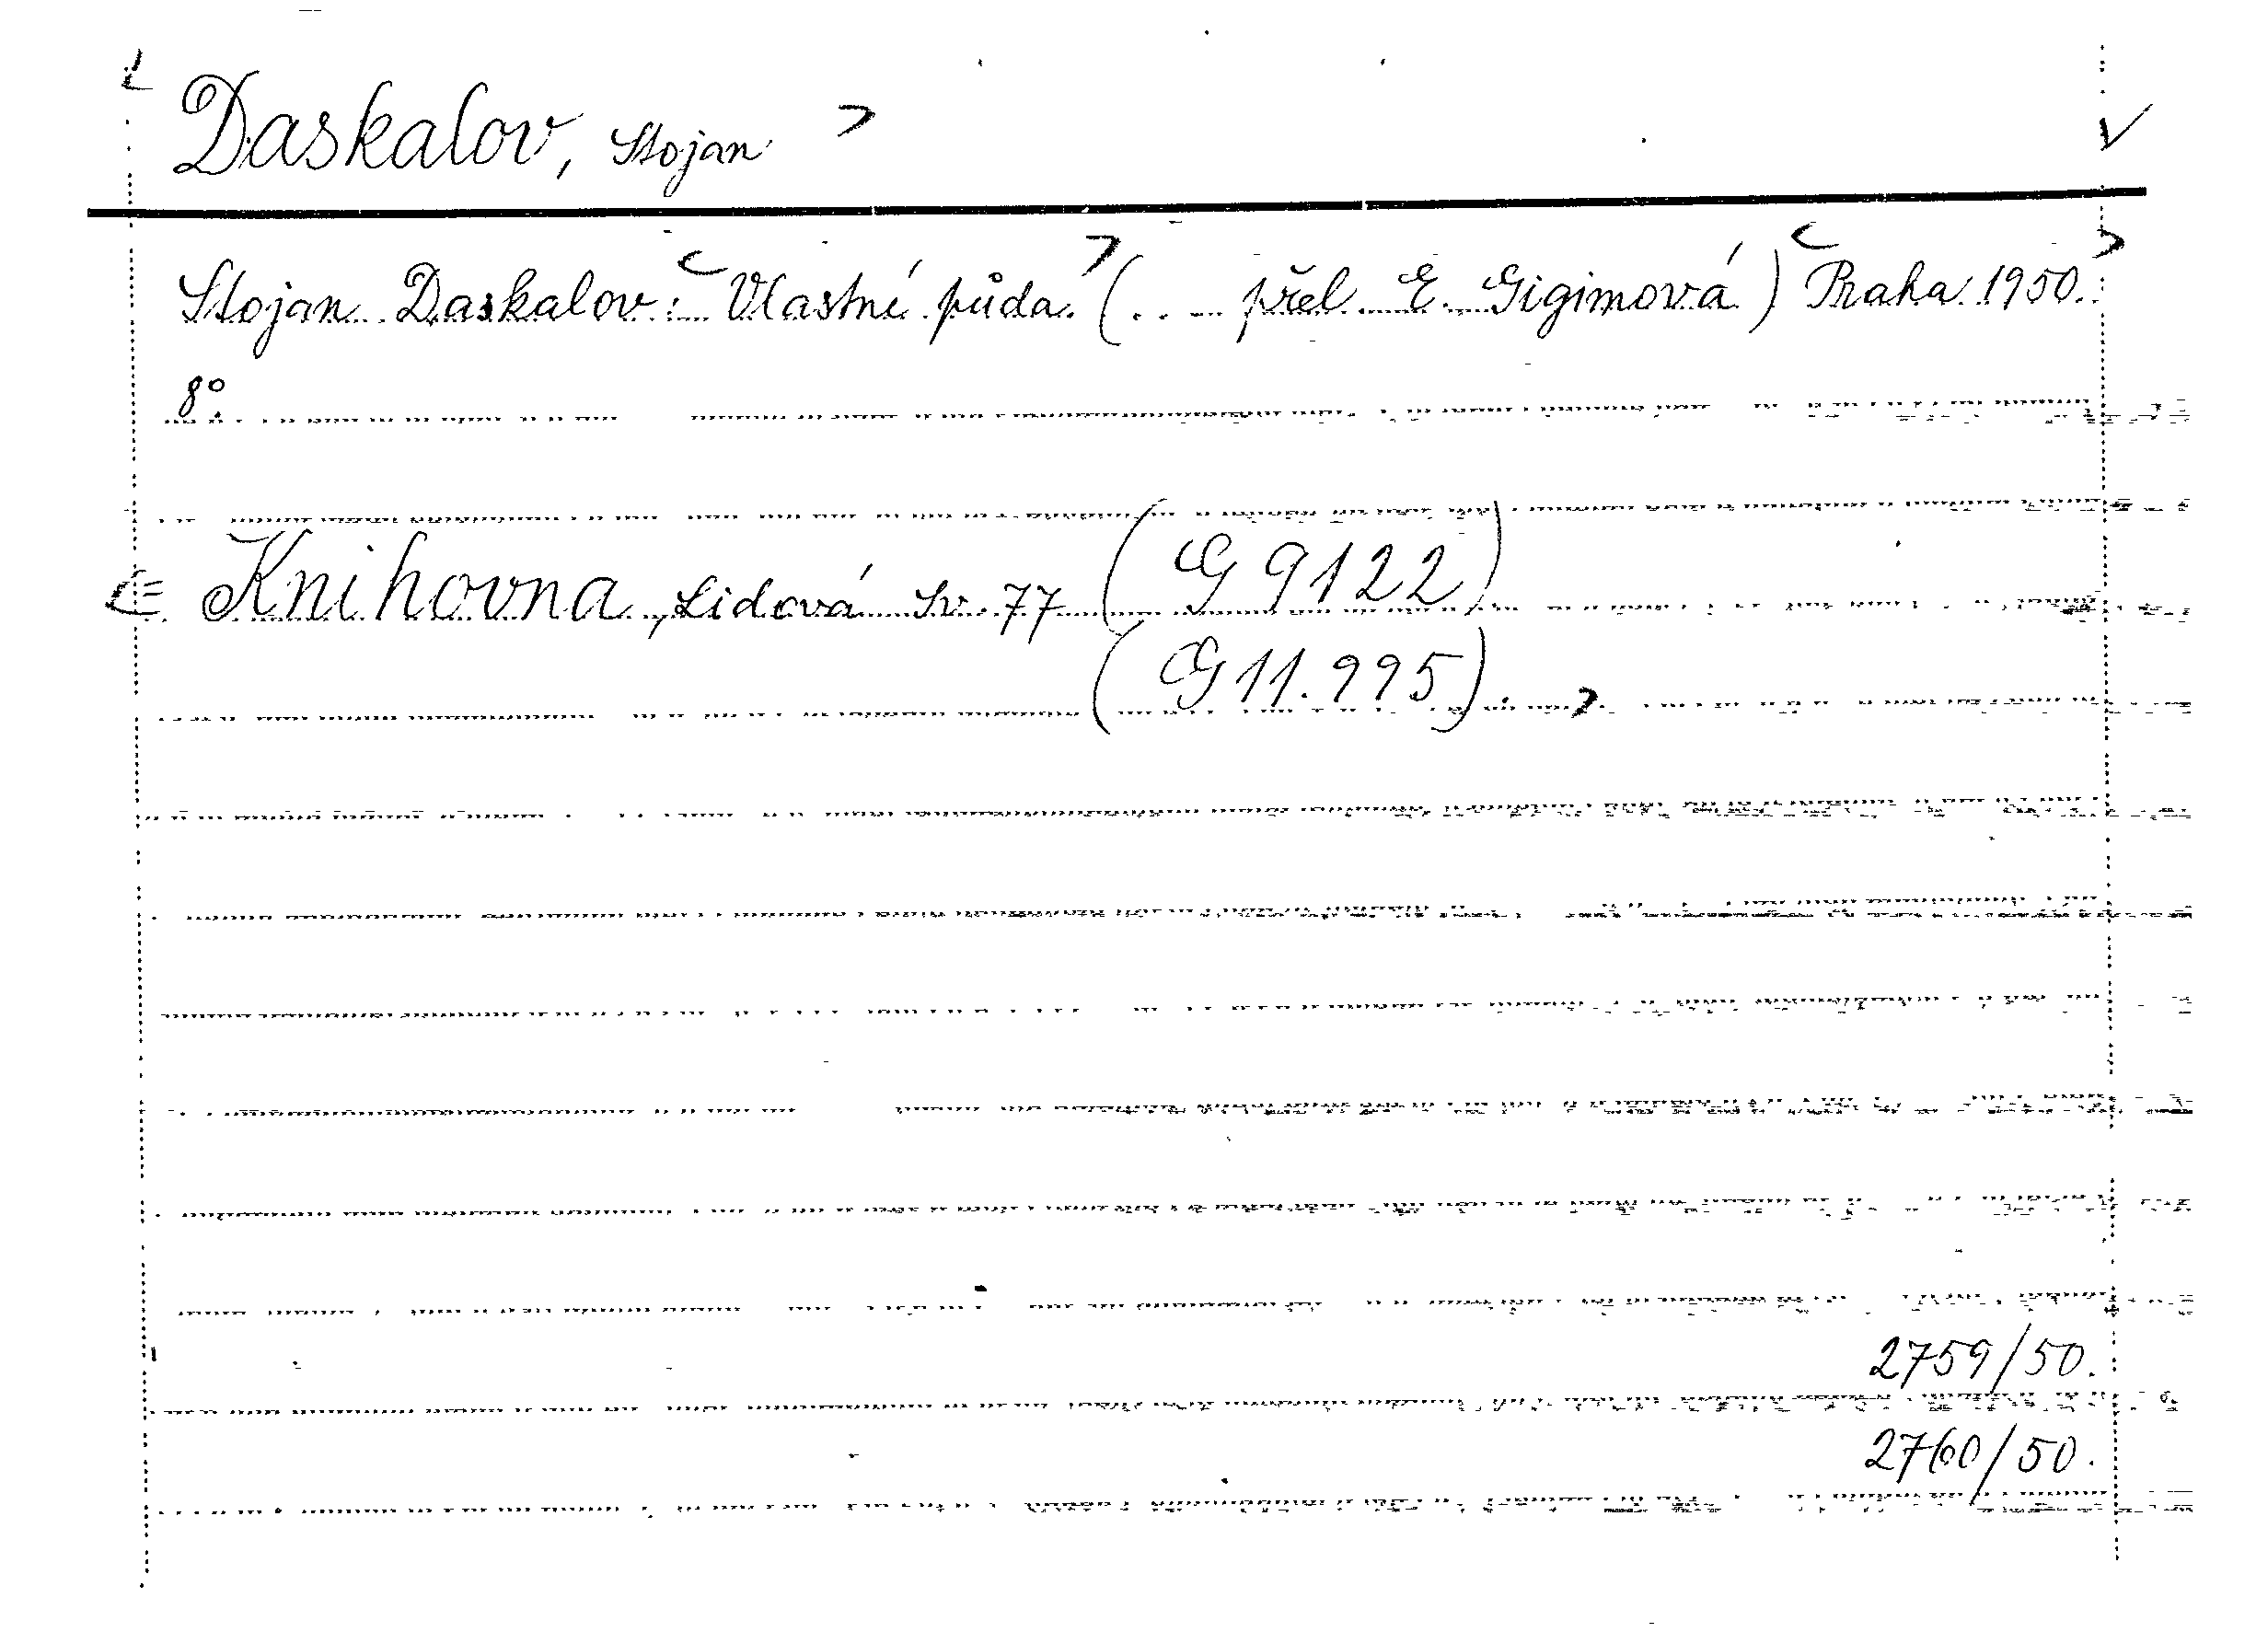 Daskalov, Stojan
Stojan Daskalov: Vlastné půda. (.. přel. E. Gigimová) Praha 1950.
8°.
Knihovna, Lidová Sv. 77 (G 9122)
(G 11.995).
2759/50.
2760/50.